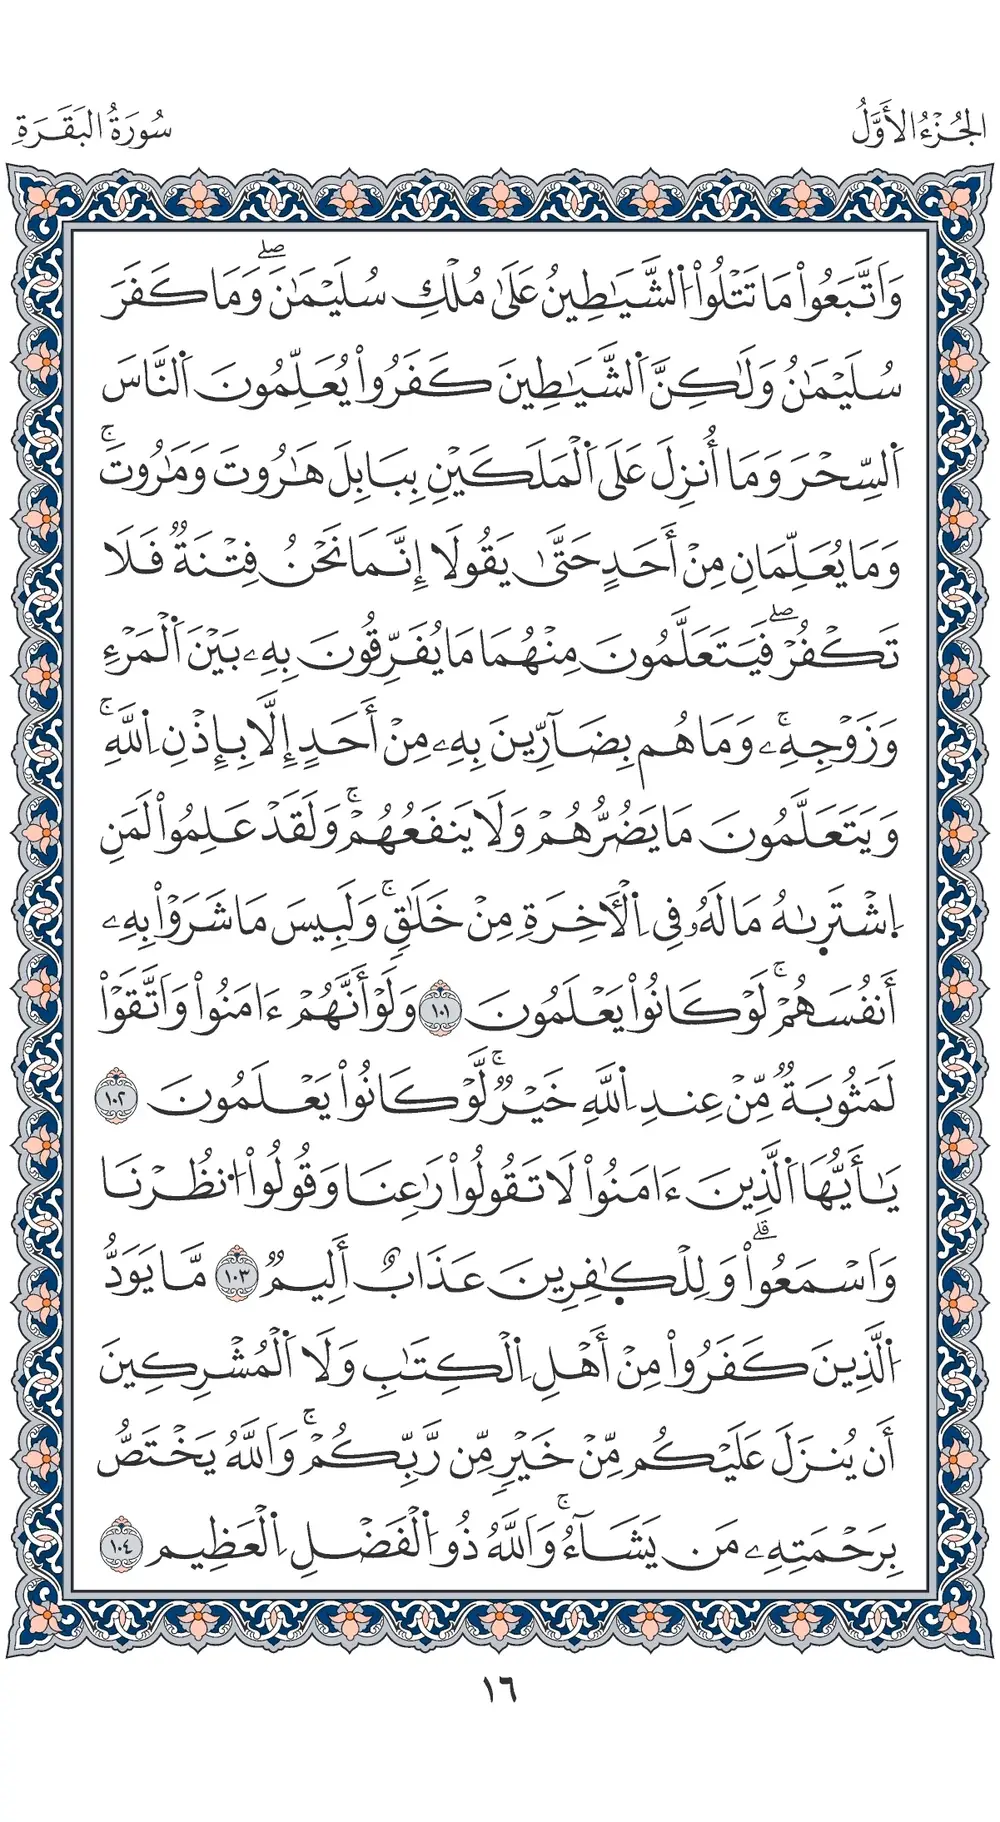 الجُزْءُ الأَوَّلُ
سُورَةُ البَقَرَةِ
وَاَتَّبَعُواْ مَا تَتْلُواْ اُ۬لشَّيَٰطِينُ عَلَىٰ مُلْكِ سُلَيْمَٰنَۖ وَمَا كَفَرَ
سُلَيْمَٰنُ وَلَٰكِنَّ اَ۬لشَّيَٰطِينَ كَفَرُواْ يُعَلِّمُونَ اَ۬لنَّاسَ
اَ۬لسِّحْرَ وَمَا أُنزِلَ عَلَى اَ۬لْمَلَكَيْنِ بِبَابِلَ هَٰرُوتَ وَمَٰرُوتَۚ
وَمَا يُعَلِّمَانِ مِنْ أَحَدٍ حَتَّىٰ يَقُولَا إِنَّمَا نَحْنُ فِتْنَةٌ فَلَا
تَكْفُرْۖ فَيَتَعَلَّمُونَ مِنْهُمَا مَا يُفَرِّقُونَ بِهِۦ بَيْنَ اَ۬لْمَرْءِ
وَزَوْجِهِۦۚ وَمَا هُم بِضَآرِّينَ بِهِۦ مِنْ أَحَدٍ إِلَّا بِإِذْنِ اِ۬للَّهِۚ
وَيَتَعَلَّمُونَ مَا يَضُرُّهُمْ وَلَا يَنفَعُهُمْۚ وَلَقَدْ عَلِمُواْ لَمَنِ
اِ۪شْتَر۪ىٰهُ مَا لَهُۥ فِي اِ۬لْأٓخِرَةِ مِنْ خَلَٰقٍۚ وَلَبِيسَ مَا شَرَوْاْ بِهِۦ
أَنفُسَهُمْۚ لَوْ كَانُواْ يَعْلَمُونَ ١٠١ وَلَوْ أَنَّهُمْ ءَامَنُواْ وَاَتَّقَوْاْ
لَمَثُوبَةٌ مِّنْ عِندِ اِ۬للَّهِ خَيْرٌۚ لَّوْ كَانُواْ يَعْلَمُونَ ١٠٢
يَٰأَيُّهَا اَ۬لَّذِينَ ءَامَنُواْ لَا تَقُولُواْ رَٰعِنَا وَقُولُواْ اُ۟نظُرْنَا
وَاَسْمَعُواْۗ وَلِلْكٰ۪فِرِينَ عَذَابٌ أَلِيمٌ ١٠٣ مَّا يَوَدُّ
اُ۬لَّذِينَ كَفَرُواْ مِنْ أَهْلِ اِ۬لْكِتَٰبِ وَلَا اَ۬لْمُشْرِكِينَ
أَن يُنزَلَ عَلَيْكُم مِّنْ خَيْرٍ مِّن رَّبِّكُمْۚ وَاَللَّهُ يَخْتَصُّ
بِرَحْمَتِهِۦ مَن يَشَآءُۚ وَاَللَّهُ ذُو اُ۬لْفَضْلِ اِ۬لْعَظِيمِ ١٠٤
١٦